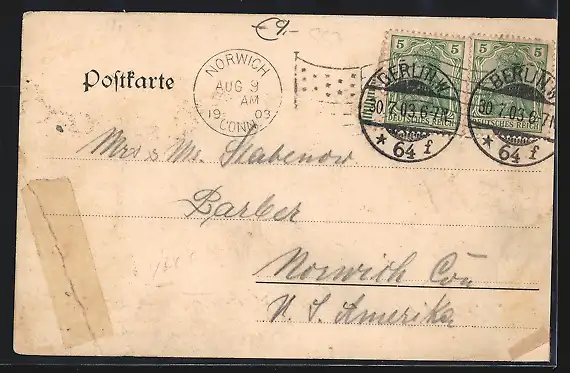 €9.-
5 5 5 5
NORWICH
AUG 9
AM
1903
CONN.
BERLIN.W.
30.7.03.6-7N.
* 64 f
BERLIN.W.
30.7.03.6-7N.
* 64 f
DEUTSCHES REICH
DEUTSCHES REICH
Postkarte
Mrs & Mr. Stabenow
Barber
Norwich Con
U. S. Amerika